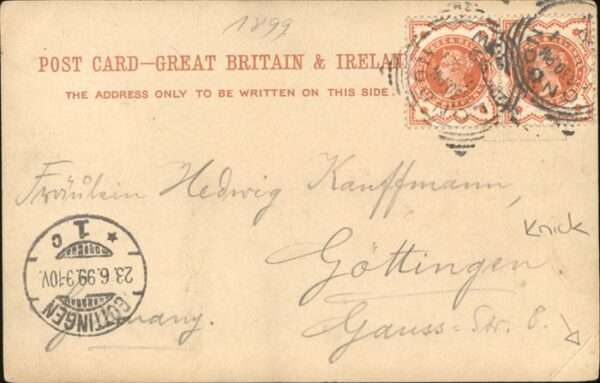 1899
POST CARD—GREAT BRITAIN & IRELAND
THE ADDRESS ONLY TO BE WRITTEN ON THIS SIDE.
Fräulein Hedwig Kauffmann,
Knick
Göttingen.
Gauss-Str. 8.
Germany.
GÖTTINGEN
23.6.99.9-10V.
* 1 c